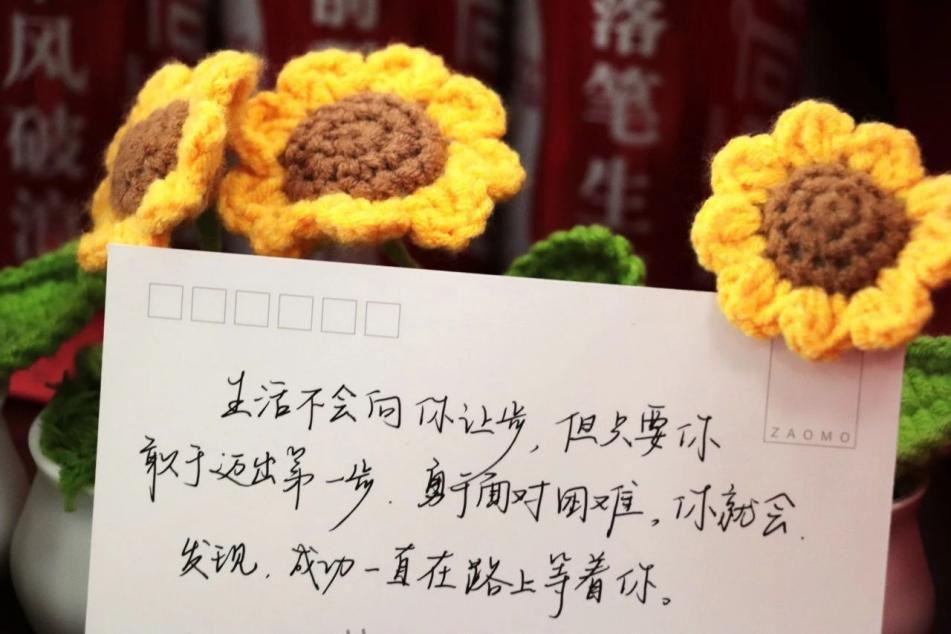 风破浪
前
落笔生
ZAOMO
生活不会向你让步,但只要你
敢于迈出第一步.勇于面对困难。你就会
发现.成功一直在路上等着你。